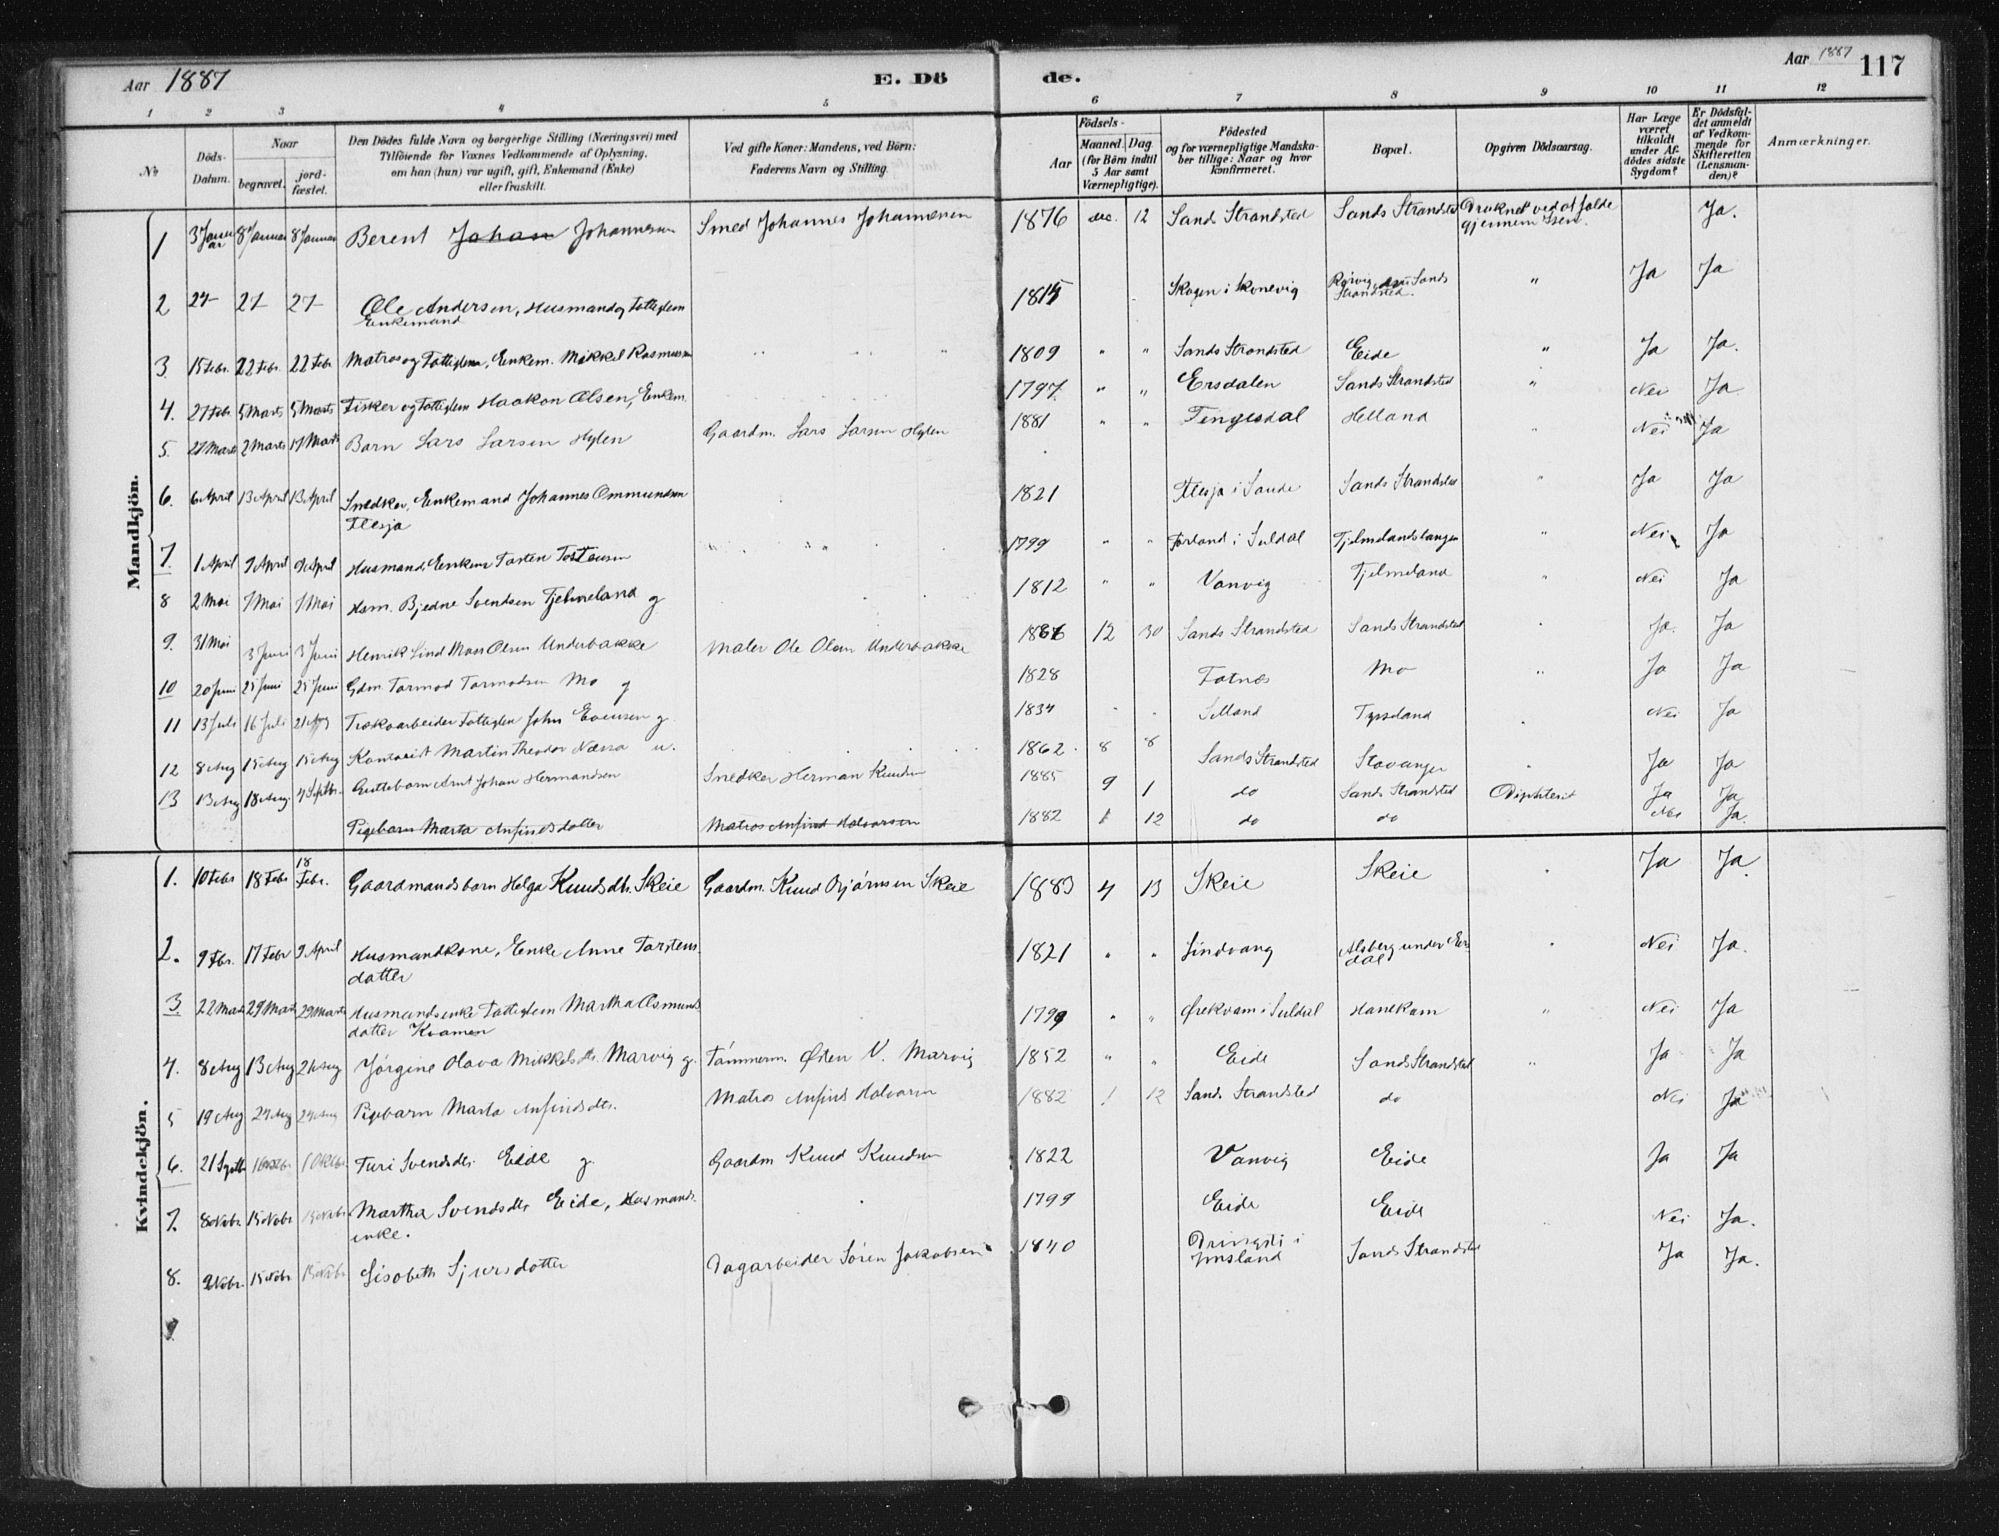 Aar 1887 E. Dö
de. Aar 1887 117
1 2 3 4 5 6 7 8 9 10 11 12
No
Döds-Datum.
Naar
begravet.
jordfæstet.
Den Dödes fulde Navn og borgerlige Stilling (Næringsvei) med
Tilföiende for Voxnes Vedkommende af Oplysning,
om han (hun) var ugift, gift, Enkemand (Enke)
eller fraskilt.
Ved gifte Koner: Mandens, ved Börn:
Faderens Navn og Stilling.
Födsels-
Aar
Maaned. Dag
(for Börn indtil
5 Aar samt
Værnepligtige).
Födested
og for værnepligtige Mandskaber tillige: Naar og hvor
konfirmeret.
Bopæl.
Opgiven Dödsaarsag.
Har Læge
været
tilkaldt
under Afdödes sidste
Sygdom?
Er Dödsfaldet anmeldt
af Vedkommende for
Skifteretten
(Lensmanden)?
Anmærkninger.
Mandkjön.
1 3 Januar 8 Januar 8 Januar Berent Johan Johannesen Smed Johannes Johannesen 1876 dec. 12 Sands Strandsted Sands Strandsted Druknet ved at falde gjennem Isen. Ja.
2 24 27 27 Ole Andersen, Husmand og Fattiglem Enkemand 1815 Skogen i Skonevig Sands Strandsted. " Ja Ja
3. 15 Febr. 22 Febr. 22 Febr Matros og Fattiglem, Enkem. Mikkel Rasmussen 1809 " " Sands Strandsted Eide " Ja Ja.
4. 27 Febr 5 Marts 5 Marts Fisker og Fattiglem Haakon Olsen, Enkem. 1797. " " Ersdalen Sands Strandsted " Nei Ja.
5. Marts Marts 17 Marts Barn Lars Larsen Hylen Gaardm. Lars Larsen Hylen 1881 " " Helland Nei Ja
6. 6 April 13 April 13 April Snedker, Enkemand Johannes Ommundsen Flesja 1821 Flesja i Saude Sands Strandsted " Ja Ja
7. 1 April 9 April 9 April Husmand, Enkem Tosten Tostensen 1799 " " i Suldal Fjelmelandstangen " Nei Ja
8 2 Mai 7 Mai 7 Mai Hsm. Bjedne Svendsen Fjelmeland g. 1812 " " Vanvig Fjelmeland " Nei Ja
9. 31 Mai 3 Juni 3 Juni Henrik Lind Moss Olsen Underbakke Maler Ole Olsen Underbakke 12 30 Sands Strandsted Sands Strandsted Ja. Ja
10 20 Juni 25 Juni 25 Juni Gdm. Tormod Tormodsen Mo g 1828 Fatnes Mo " Ja Ja
11 13 Juli 16 Juli 21 Aug Fattiglem John Evensen g. 1834 Nei Ja
12 8 Aug 15 Aug 15 Aug Kontorist Martin Theodor Næsse u. 1862. 8 8 Sands Strandsted Stavanger Ja Ja
13 13 Aug 18 Aug. 4 Septbr. Guttebarn Arnt Johan Hermandsen Snedker Herman Knudsen 1885 9 1 do Sands Strandsted Diphterit Ja Ja
Pigebarn Marta Anfindsdatter Matros Anfind Halvorsen 1882 1 12 do do Nei Ja.
Kvindekjön.
1. 10 Febr 18 Febr 18 Febr. Gaardmandsbarn Helga Knudsdtr. Skeie Gaardm. Knud Bjørnsen Skeie 1883 4 13 Skeie Skeie Ja Ja.
2. 9 Febr. 17 Febr 9 April Husmandkone, Enke Anne Torstensdatter 1821 " " Lindvang Nei Ja.
3 22 Marts 29 Marts 29 Marts Husmandsenke Fattiglem Martha Osmundsdatter Kvamen " " i Suldal Hanekam " Nei Ja
4. 8 Aug 13 Aug 21 Aug Jørgine Olava Mikkelsdtr. Marvig g. Tømmerm. Østen V. Marvig 1852 " " Eide Sands Strandsted " Ja Ja
5 19 Aug 24 Aug 24 Aug Pigebarn Marta Anfindsdtr. Matros Anfind Halvorsen 1882 1 12 Sands Strandsted do Nei Ja
6. 21 Septbr 1 Oktbr. Turi Svendsdtr. Eide g. Gaardm Knud Knudsen 1822 Vanvig Eide Ja Ja
7. 8 Novbr. 15 Novbr 15 Novbr Martha Svendsdtr Eide, Husmandsenke. 1799 Eide Eide Nei Ja.
8. 9 Novbr. 15 Novbr 15 Novbr Lisobeth Sjursdotter Dagarbeider Søren Jakobsen 1840 i Imsland Sands Strandsted Ja Ja.
9.